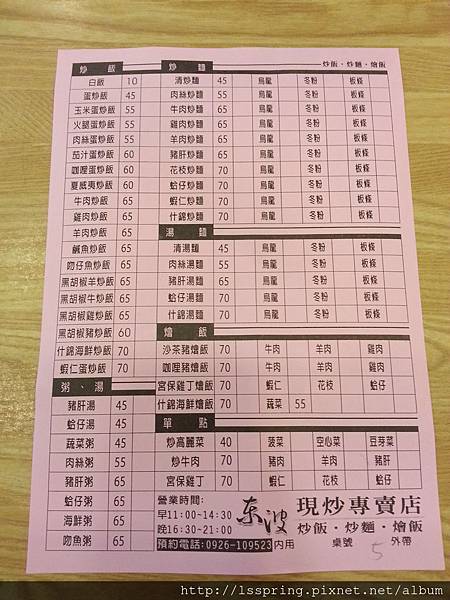 炒飯
白飯 10
蛋炒飯 45
玉米蛋炒飯 55
火腿蛋炒飯 55
肉絲蛋炒飯 55
茄汁蛋炒飯 60
咖哩蛋炒飯 60
夏威夷炒飯 60
牛肉炒飯 65
雞肉炒飯 65
羊肉炒飯 65
鹹魚炒飯 65
吻仔魚炒飯 65
黑胡椒羊炒飯 65
黑胡椒牛炒飯 65
黑胡椒雞炒飯 65
黑胡椒豬炒飯 60
什錦海鮮炒飯 70
蝦仁蛋炒飯 70
粥、湯
豬肝湯 45
蛤仔湯 45
蔬菜粥 45
肉絲粥 55
豬肝粥 65
蛤仔粥 65
海鮮粥 65
吻魚粥 65
炒麵 炒飯・炒麵・燴飯
清炒麵 45 烏龍 冬粉 板條
肉絲炒麵 55 烏龍 冬粉 板條
牛肉炒麵 65 烏龍 冬粉 板條
雞肉炒麵 65 烏龍 冬粉 板條
羊肉炒麵 65 烏龍 冬粉 板條
豬肝炒麵 65 烏龍 冬粉 板條
花枝炒麵 70 烏龍 冬粉 板條
蛤仔炒麵 70 烏龍 冬粉 板條
蝦仁炒麵 70 烏龍 冬粉 板條
什錦炒麵 70 烏龍 冬粉 板條
湯麵
清湯麵 45 烏龍 冬粉 板條
肉絲湯麵 55 烏龍 冬粉 板條
豬肝湯麵 65 烏龍 冬粉 板條
蛤仔湯麵 70 烏龍 冬粉 板條
什錦湯麵 70 烏龍 冬粉 板條
燴飯
沙茶豬燴飯 70 牛肉 羊肉 雞肉
咖哩豬燴飯 70 牛肉 羊肉 雞肉
宮保雞丁燴飯 70 蝦仁 花枝 蛤仔
什錦海鮮燴飯 70 蔬菜 55
單點
炒高麗菜 40 菠菜 空心菜 豆芽菜
炒牛肉 70 豬肉 羊肉 豬肝
宮保雞丁 70 蝦仁 花枝 蛤仔
營業時間:
早11:00~14:30
晚16:30~21:00
預約電話:0926-109523
东波 現炒專賣店
炒飯・炒麵・燴飯
內用 桌號 5 外帶
http://lsspring.pixnet.net/album